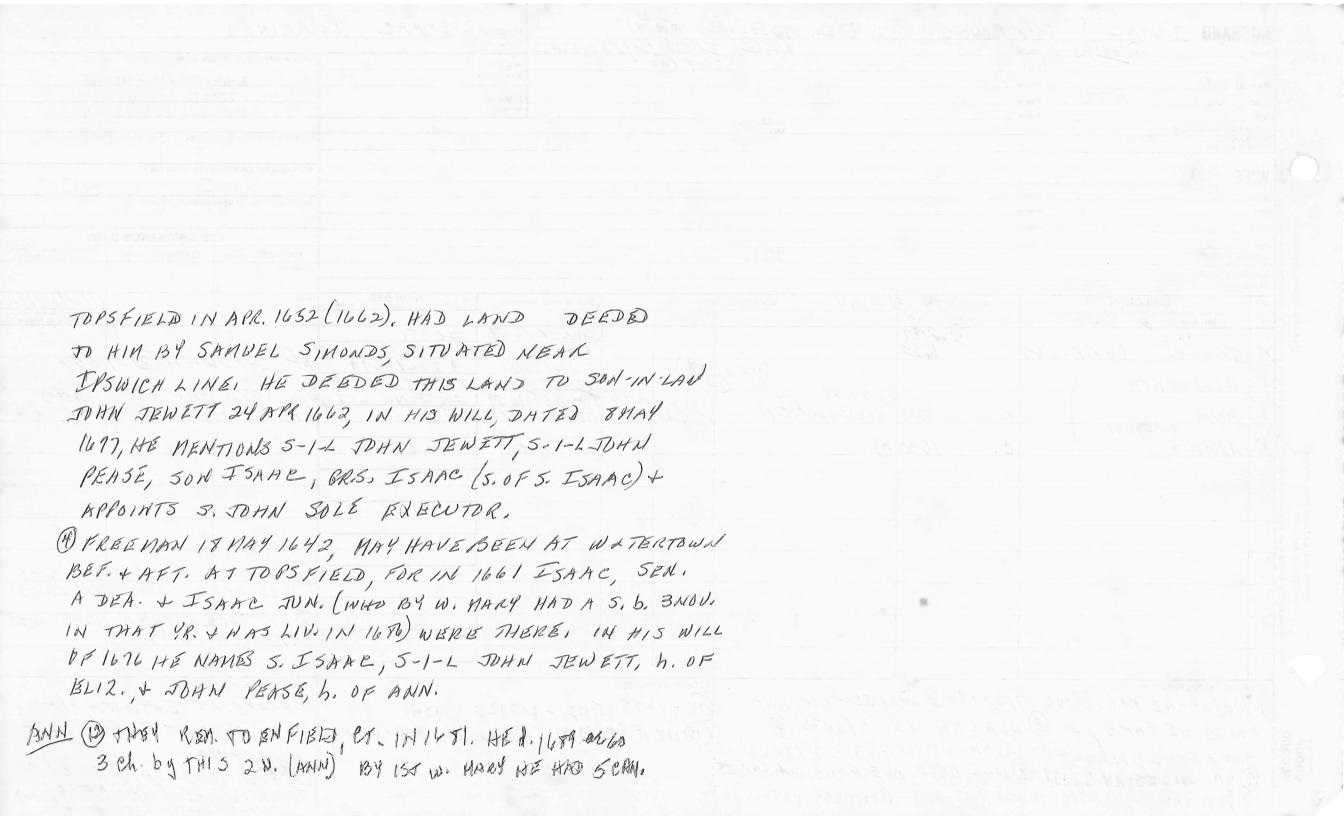 TOPSFIELD IN APR. 1652 (1662). HAD LAND DEEDED
TO HIM BY SAMUEL SIMONDS, SITUATED NEAR
IPSWICH LINE. HE DEEDED THIS LAND TO SON-IN-LAW
JOHN JEWETT 24 APR 1662, IN HIS WILL, DATED 8 MAY
HE MENTIONS S-I-L JOHN JEWETT, S-I-L JOHN
PEASE, SON ISAAC, GRS. ISAAC (S. OF S. ISAAC) +
APPOINTS S. JOHN SOLE EXECUTOR.
④ FREEMAN 18 MAY 1642, MAY HAVE BEEN AT WATERTOWN
BEF. + AFT. AT TOPSFIELD, FOR IN 1661 ISAAC, SEN.
A DEA. + ISAAC JUN. (WHO BY W. MARY HAD A S. b. 3 NOV.
IN THAT YR. + WAS LIV. IN WERE THERE. IN HIS WILL
OF 1676 HE NAMES S. ISAAC, S-I-L JOHN JEWETT, h. OF
ELIZ., + JOHN PEASE, h. OF ANN.
ANN THEY REM. TO ENFIELD, CT. IN 1681. HE d. 1689
3 ch. by THIS 2 N. (ANN) BY 1ST W. MARY HE HAD 5